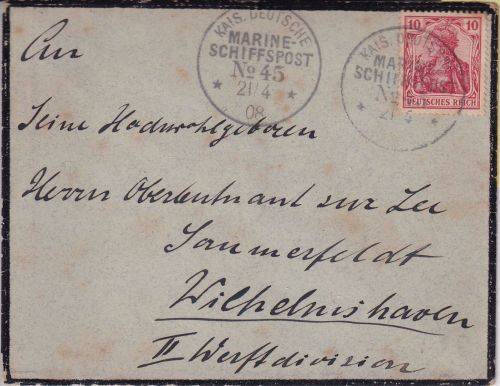 An
KAIS. DEUTSCHE
MARINE-
SCHIFFSPOST
No 45
* 21/4 *
08
KAIS. D
MAR
SCHIFF
No
* 21/4
10 10
DEUTSCHES REICH
Seine Hochwohlgeboren
Herrn Oberleutnant zur See
Sommerfeldt
Wilhelmshaven
II Werftdivision